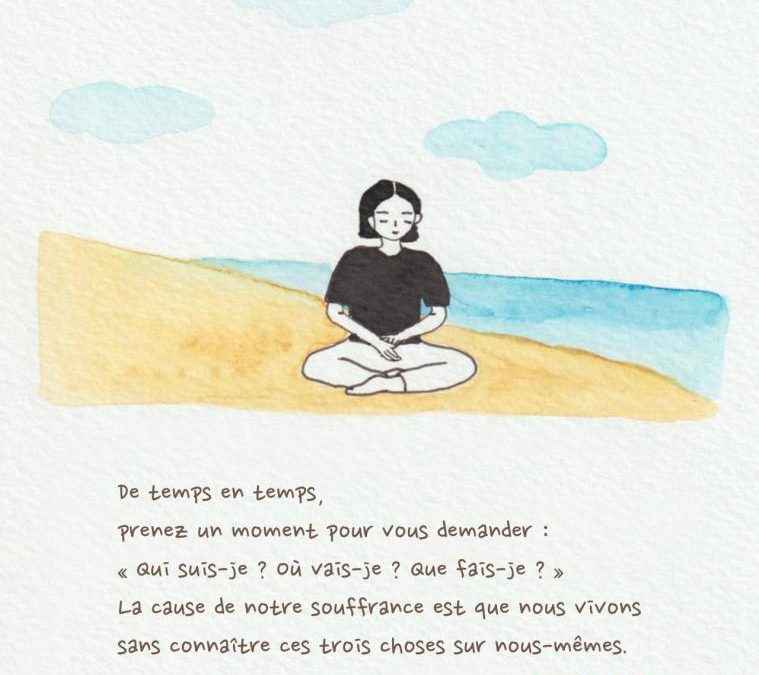 De temps en temps,
prenez un moment pour vous demander :
« Qui suis-je ? Où vais-je ? Que fais-je ? »
La cause de notre souffrance est que nous vivons
sans connaître ces trois choses sur nous-mêmes.